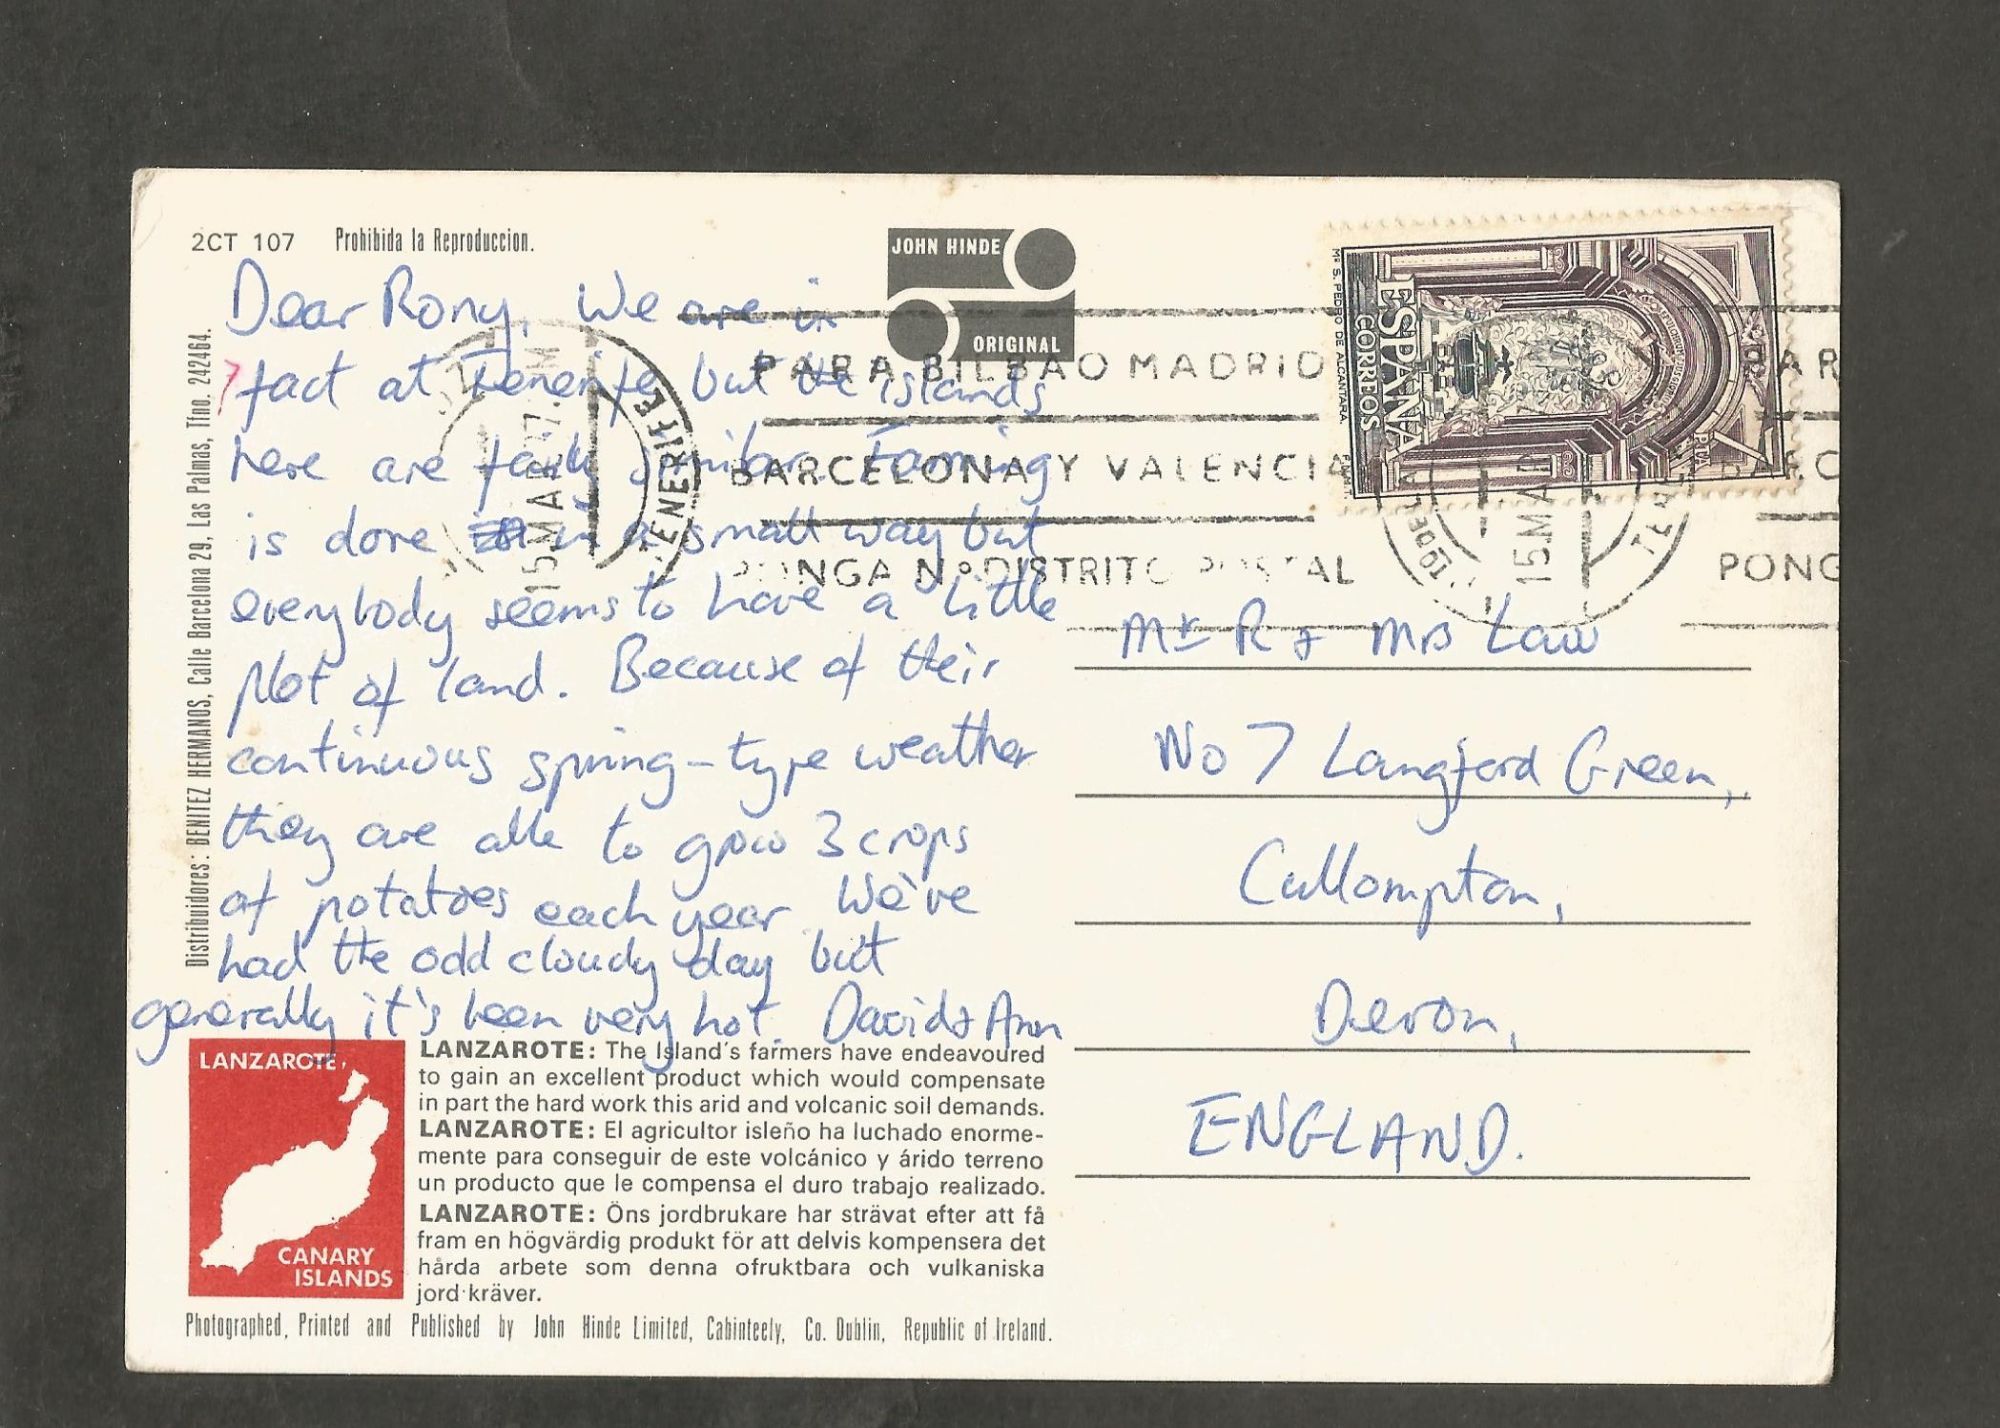 2CT 107 Prohibida la Reproduccion.
JOHN HINDE
ORIGINAL
Dear Rony, We are in
fact at Tenerife but the islands
here are fairly similar. Farming
is done in a small way but
everybody seems to have a little
plot of land. Because of their
continuous spring-type weather
they are able to grow 3 crops
of potatoes each year We've
had the odd cloudy day but
generally it's been very hot. David & Ann
Distribuidores: BENITEZ HERMANOS, Calle Barcelona 29, Las Palmas, Tfno. 242464.
LANZAROTE
CANARY
ISLANDS
LANZAROTE: The Island's farmers have endeavoured
to gain an excellent product which would compensate
in part the hard work this arid and volcanic soil demands.
LANZAROTE: El agricultor isleño ha luchado enorme-
mente para conseguir de este volcánico y árido terreno
un producto que le compensa el duro trabajo realizado.
LANZAROTE: Öns jordbrukare har strävat efter att få
fram en högvärdig produkt för att delvis kompensera det
hårda arbete som denna ofruktbara och vulkaniska
jord kräver.
Photographed, Printed and Published by John Hinde Limited, Cabinteely, Co. Dublin, Republic of Ireland.
15 MAR 77
TENERIFE
PARA BILBAO MADRID
BARCELONA Y VALENCIA
PONGA Nº DISTRITO POSTAL
ESPAÑA
CORREOS
Mº S. PEDRO DE ALCANTARA.
BAR
BARC
15 MAR
TENE
PONG
Mr R & Mrs Law
No 7 Langford Green,
Cullompton,
Devon,
ENGLAND.